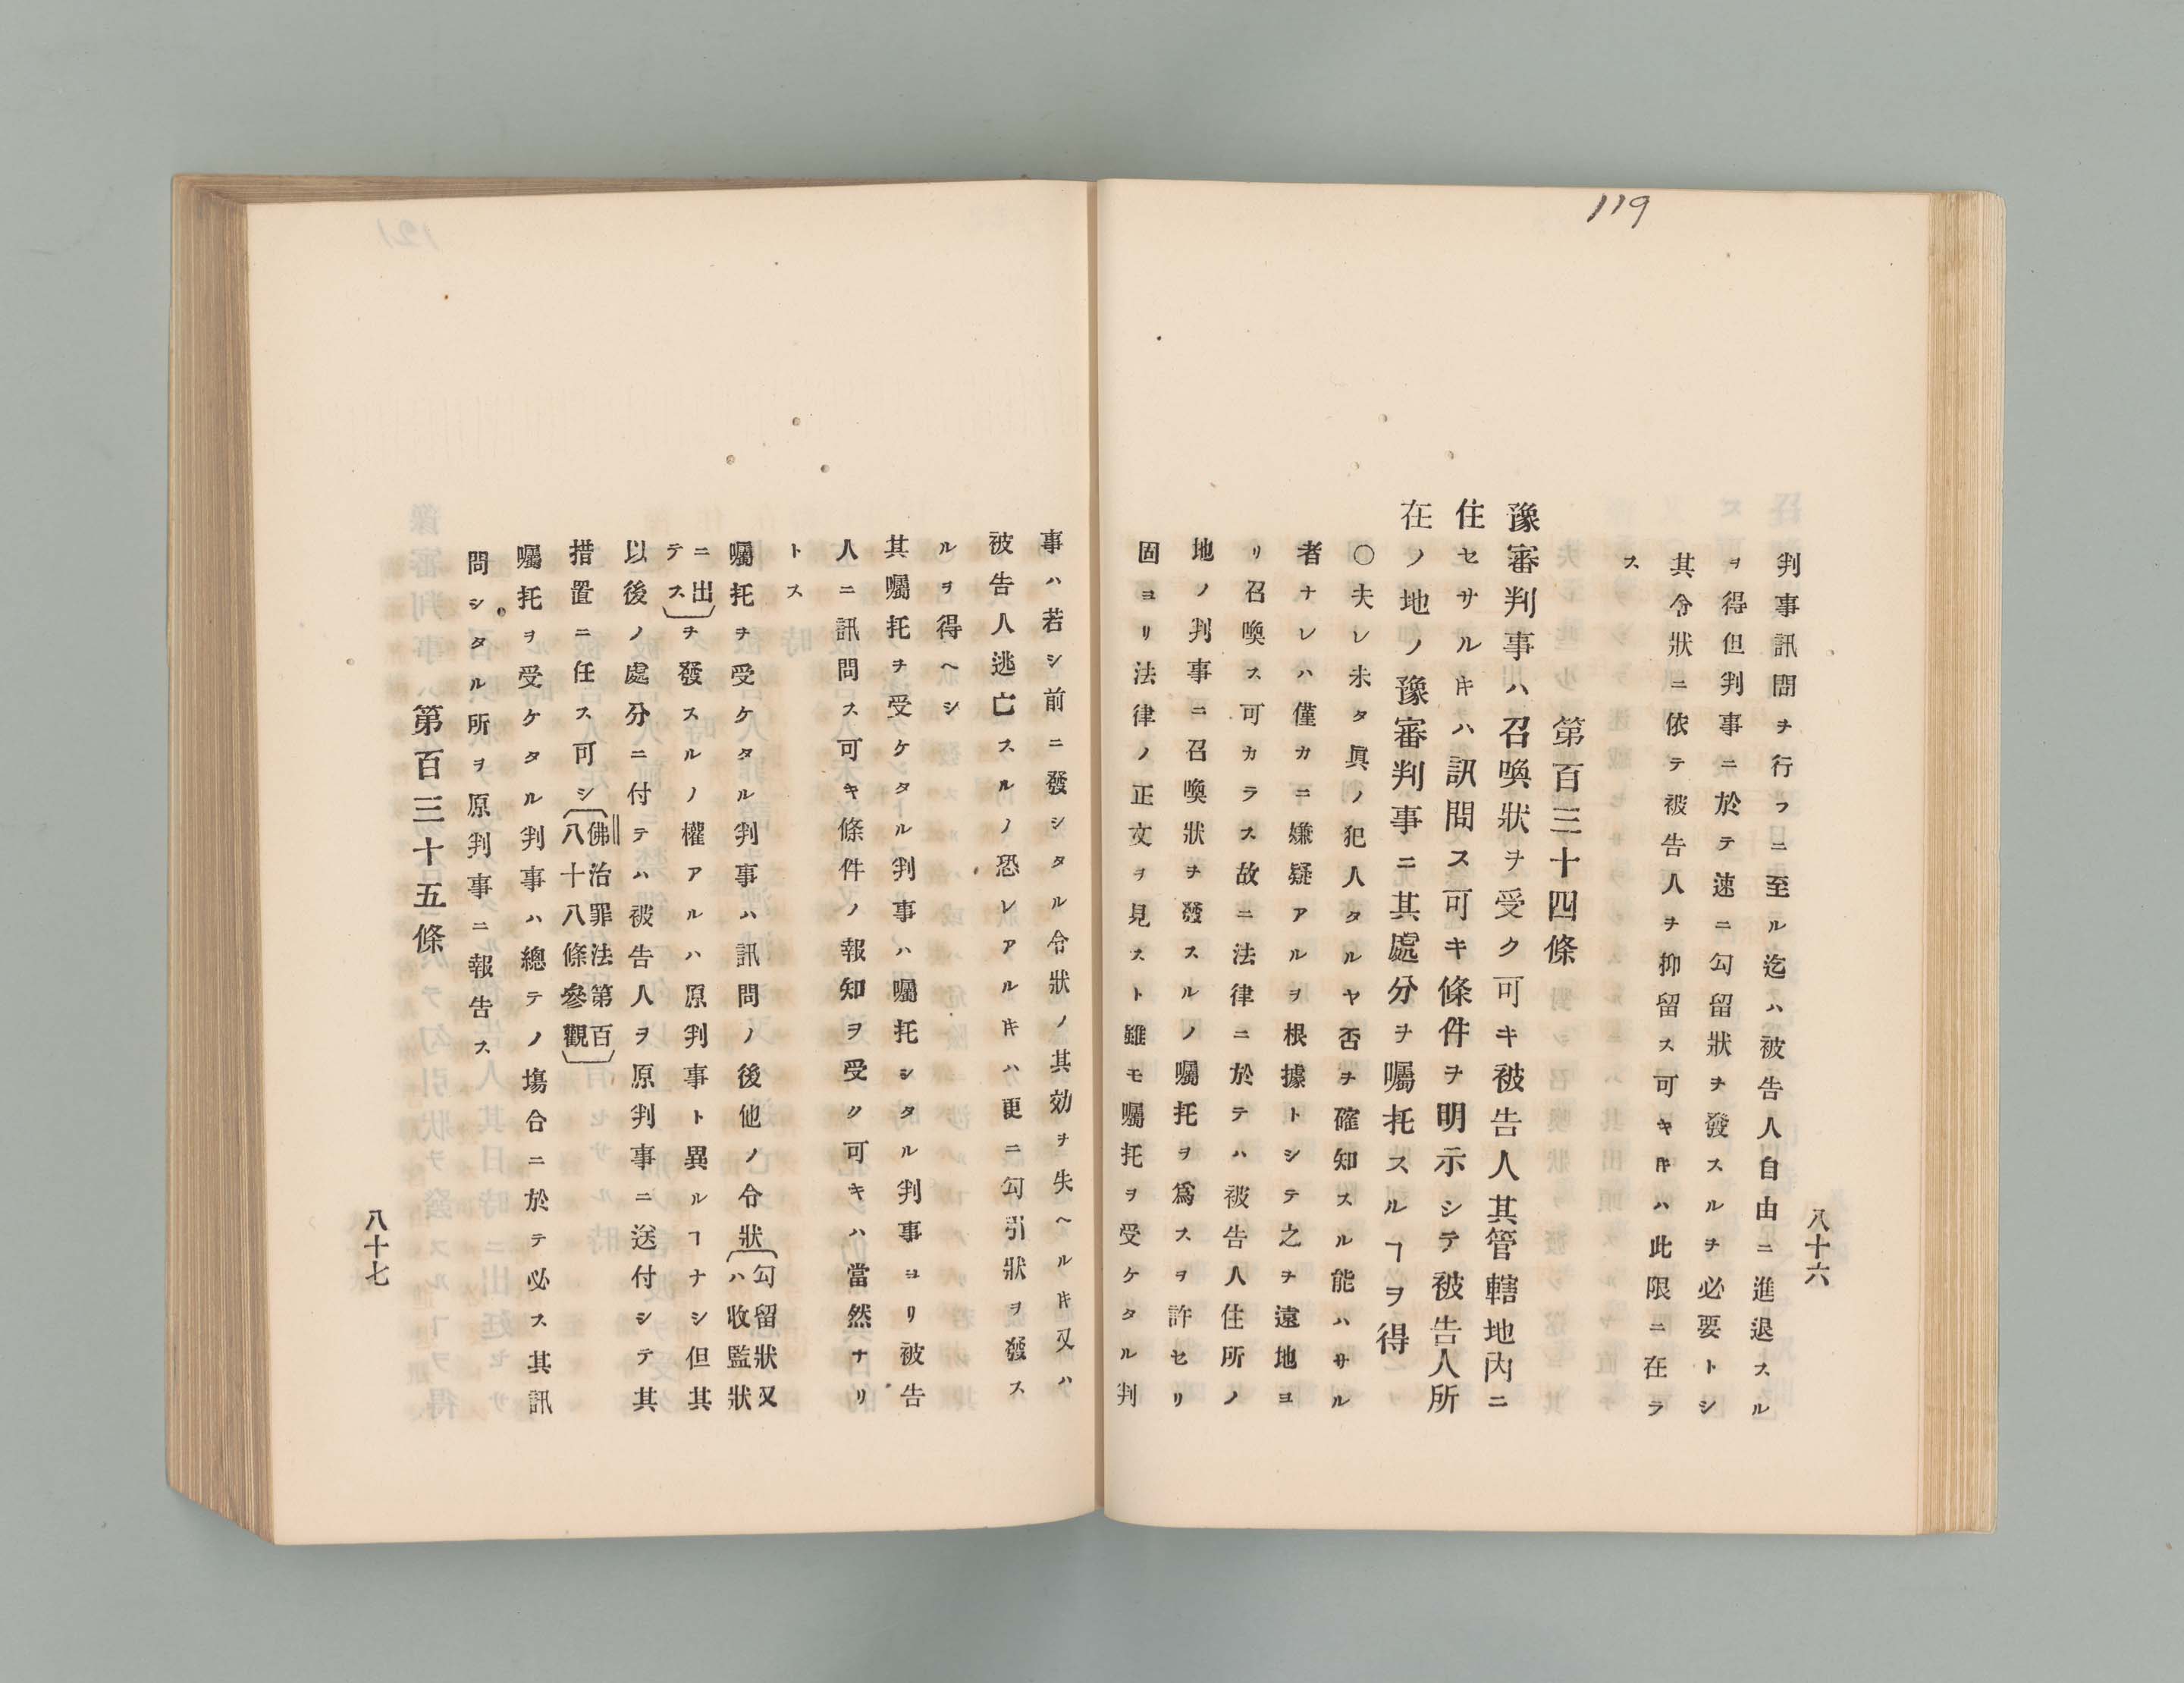 119
判事訊問ヲ行フニ至ル迄ハ被告人自由ニ進退スル
ヲ得但判事ニ於テ速ニ勾留狀ヲ發スルヲ必要トシ
其令狀ニ依テ被告人ヲ抑留ス可キ𪜈ハ此限ニ在ラ
ス
第百三十四條
豫審判事ハ召喚狀ヲ受ク可キ被告人其管轄地內ニ
住セサル𪜈ハ訊問ス可キ條件ヲ明示シテ被告人所
在ノ地ノ豫審判事ニ其處分ヲ囑托スルヿヲ得
〇夫レ未タ眞ノ犯人タルヤ否ヲ確知スル能ハサル
者ナレハ僅カニ嫌疑アルヲ根據トシテ之ヲ遠地ヨ
リ召喚ス可カラス故ニ法律ニ於テハ被告人住所ノ
地ノ判事ニ召喚狀ヲ發スルノ囑托ヲ爲スヲ許セリ
固ヨリ法律ノ正文ヲ見スト雖モ囑托ヲ受ケタル判
八十六
事ハ若シ前ニ發シタル令狀ノ其効ヲ失ヘル𪜈又ハ
被告人逃亡スルノ恐レアル𪜈ハ更ニ勾引狀ヲ發ス
ルヲ得ヘシ
其囑托ヲ受ケタル判事ハ囑托シタル判事ヨリ被告
人ニ訊問ス可キ條件ノ報知ヲ受ク可キハ當然ナリ
トス
囑托ヲ受ケタル判事ハ訊問ノ後他ノ令狀〔勾留狀又ハ收監狀
ニ出テス〕ヲ發スルノ權アルハ原判事ト異ルヿナシ但其
以後ノ處分ニ付テハ被告人ヲ原判事ニ送付シテ其
措置ニ任ス可シ〔佛治罪法第百八十八條參觀〕
囑托ヲ受ケタル判事ハ總テノ塲合ニ於テ必ス其訊
問シタル所ヲ原判事ニ報告ス
第百三十五條
八十七